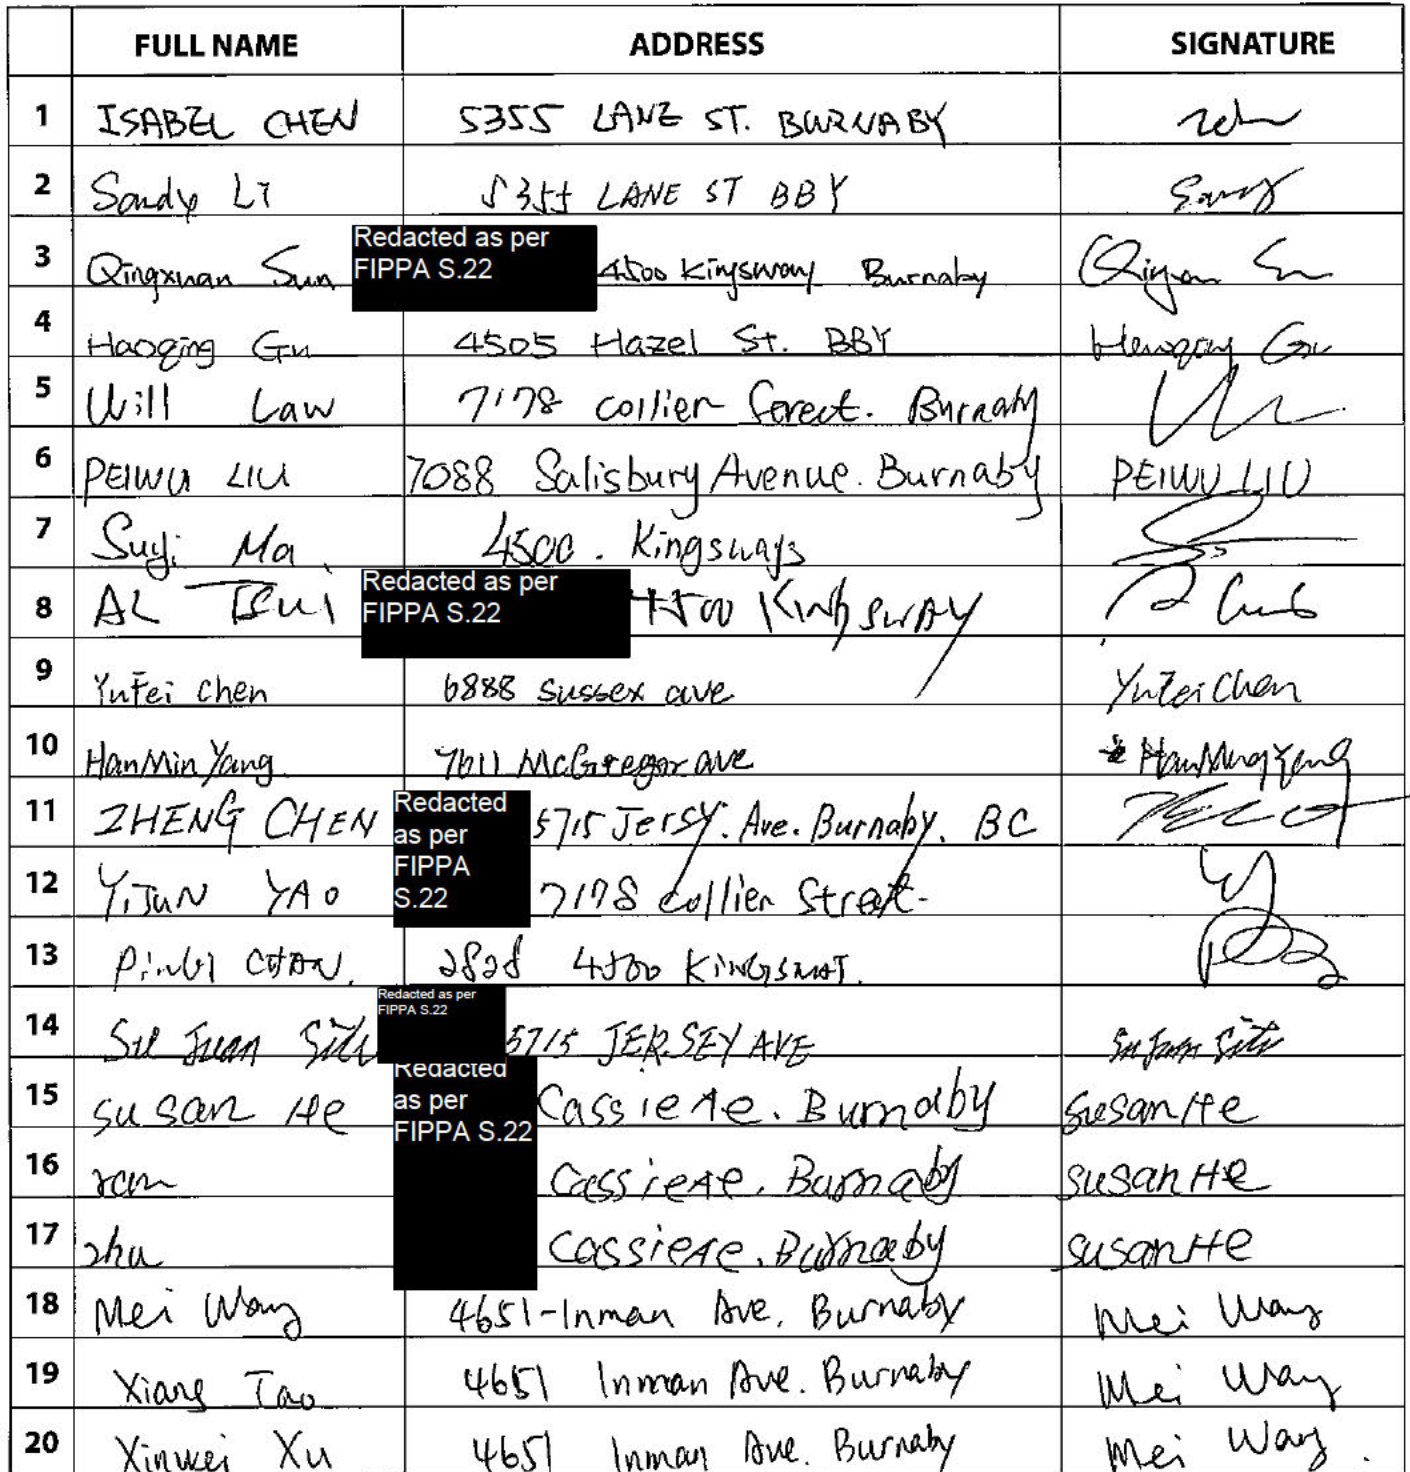 FULL NAME ADDRESS SIGNATURE
1 ISABEL CHEN 5355 LANE ST. BURNABY
2 Sandy Li 5355 LANE ST BBY Sandy
3 Qingxuan Sun Redacted as per FIPPA S.22 4500 Kingsway Burnaby
4 Haoqing Gu 4505 Hazel St. BBY Haoqing Gu
5 Will Law 7178 Collier Street. Burnaby
6 PEIWU LIU 7088 Salisbury Avenue. Burnaby PEIWU LIU
7 Ma 4500. Kingsways
8 AL TSUI Redacted as per FIPPA S.22 4500 KINGSWAY
9 YuFei Chen 6888 Sussex ave YuFei Chen
10 HanMin Yang 7611 McGregor ave
11 ZHENG CHEN Redacted as per FIPPA S.22 5715 Jersy. Ave. Burnaby. BC
12 YiJUN YAO 7178 Collier Street.
13 CHAN. 2828 4500 KINGSWAY.
14 Su Juan Situ Redacted as per FIPPA S.22 5715 JERSEY AVE Su Juan Situ
15 Susan He Redacted as per FIPPA S.22 Burnaby Susan He
16 ran Burnaby Susan He
17 zhu Burnaby Susan He
18 Mei Wang 4651-Inman Ave. Burnaby Mei Wang
19 Xiang Tao 4651 Inman Ave. Burnaby Mei Wang
20 Xinwei Xu 4651 Inman Ave. Burnaby Mei Wang